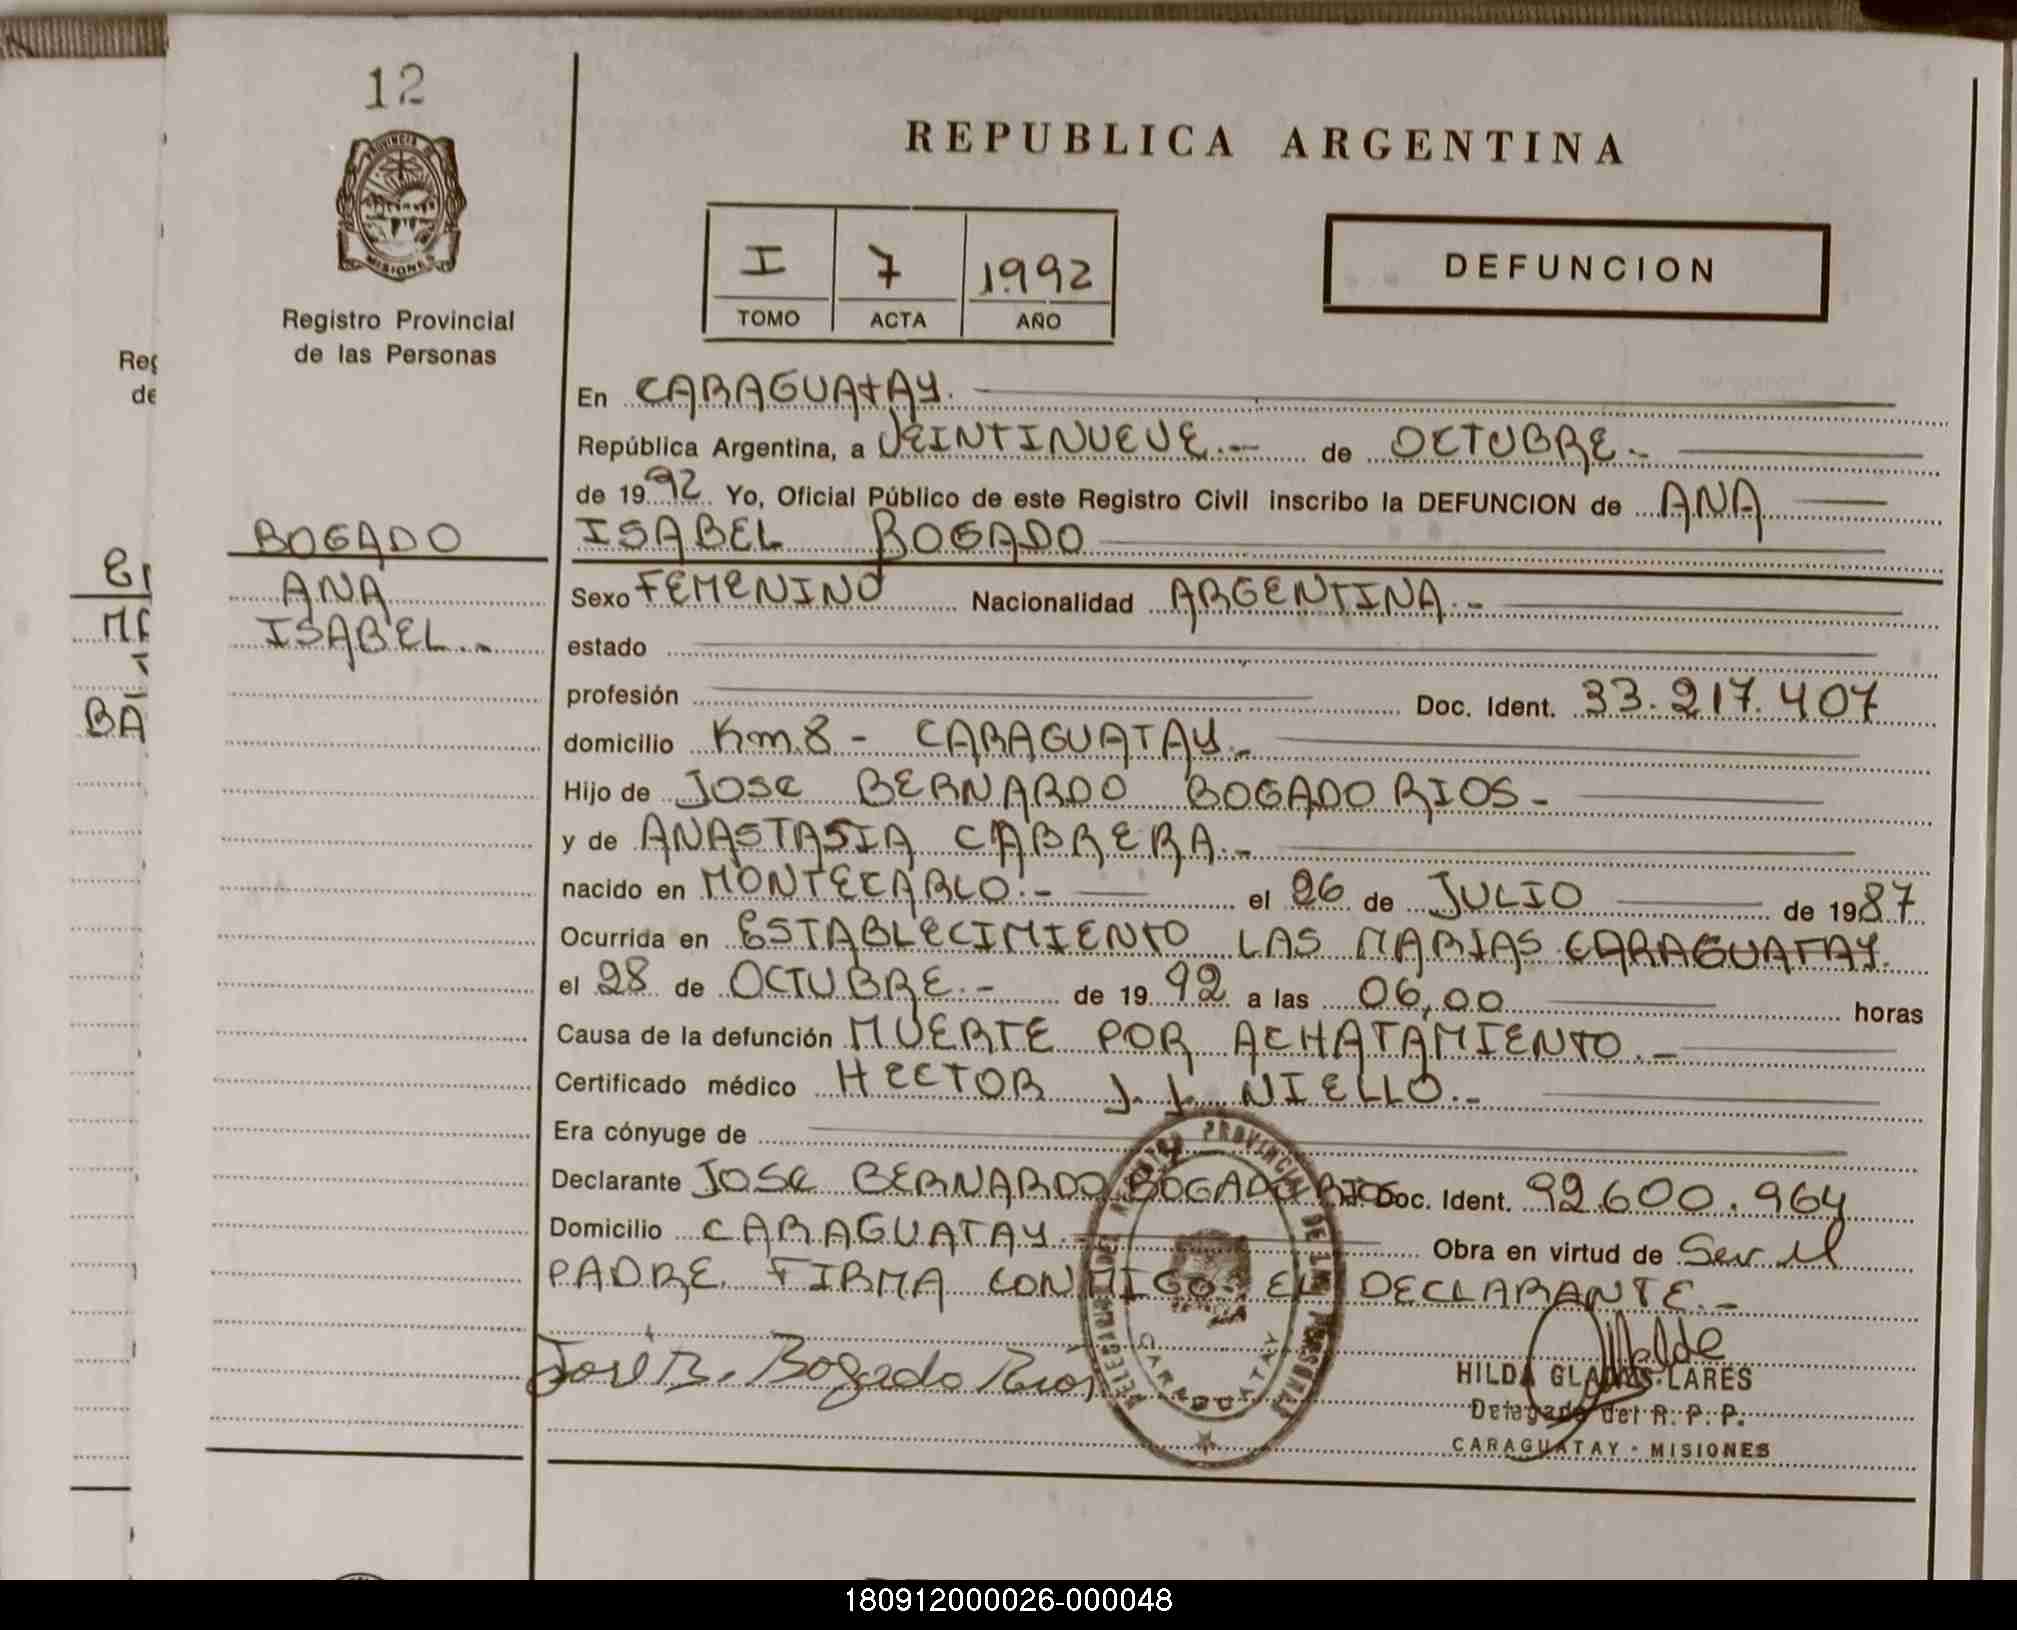 12
PROVINCIA DE
MISIONES
Registro Provincial
de las Personas
BOGADO
ANA
ISABEL.-
REPUBLICA ARGENTINA
I 7 1992
TOMO ACTA AÑO
DEFUNCION
En CARAGUATAY.
República Argentina, a VEINTINUEVE.- de OCTUBRE.-
de 1992 Yo, Oficial Público de este Registro Civil inscribo la DEFUNCION de ANA
ISABEL BOGADO
Sexo FEMENINO Nacionalidad ARGENTINA.-
estado
profesión Doc. Ident. 33.217.407
domicilio Km.8 - CARAGUATAY.-
Hijo de JOSE BERNARDO BOGADO RIOS-
y de ANASTASIA CABRERA.-
nacido en MONTECARLO.- el 26 de JULIO de 1987
Ocurrida en ESTABLECIMIENTO LAS MARIAS CARAGUATAY.
el 28 de OCTUBRE.- de 1992 a las 06,00 horas
Causa de la defunción MUERTE POR ACHATAMIENTO.-
Certificado médico HECTOR J. J. NIELLO.-
Era cónyuge de
Declarante JOSE BERNARDO BOGADO RIOS Doc. Ident. 92.600.964
Domicilio CARAGUATAY.- Obra en virtud de Ser el
PADRE. FIRMA CONMIGO EL DECLARANTE.-
José B. Bogado Ríos
PROVINCIAL DE LAS PERSONAS
CARAGUATAY
HILDA GLADYS LARES
Delegada del R. P. P.
CARAGUATAY - MISIONES
Reg
de
BA
180912000026-000048